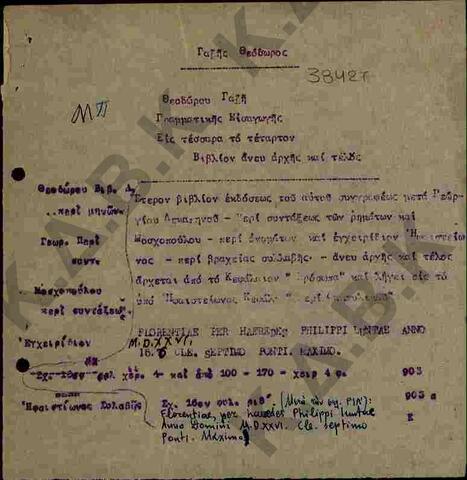 Γαζῆς Θεόδωρος
38427
Μπ
Θεοδώρου Γαζῆ
Γραμματικῆς Εἰσαγωγῆς
Εἰς τέσσαρα τό τέταρτον
Βιβλίον ἄνευ ἀρχῆς καί τέλος
Θεοδώρου Βιβ. Δ.
..περί μηνῶν.
Γεωρ. Περί
συντ.
Μοσχοπούλου
περί συντάξεω
Ἐγχειρίδιον
Ἕτερον βιβλίον ἐκδόσεως τοῦ αὐτοῦ συγγραφέως μετά Γεωρ-
γίου Λεκαπηνοῦ - Περί συντάξεως τῶν ῥημάτων καί
Μοσχοπούλου - περί ὀνομάτων καί ἐγχειρίδιον Ἡφαιστείω
νος - περί βραχείας συλλαβῆς - ἄνευ ἀρχῆς καί τέλος
ἄρχεται ἀπό τό Κεφάλαιον " Πρόσωπα" καί λήγει εἰς τό
ὑπό Ἡφαιστείωνος Κεφάλ.
FLORENTIAE PER HAEREDES PHILIPPI IUNTAE ANNO
M.D.XXVI,
CLE. SEPTIMO PONTI. MAXIMO.
Σχ. 16ον φυλ. χάρ. 4- καί ἀπό 100 - 170 - χειρ 4 φ. 903
Ἡφαιστίωνος Συλαβῆς
Σχ. 16ον φυλ. ριθ' 903 α
(Μετά τήν σημ. ΡΙΝ):
Florentiae, per haeredes Philippi Iuntae
Anno Domini M.D.XXVI. Cle. Septimo
Ponti. Maximo) Ε
Κ.Α.Β.Κ